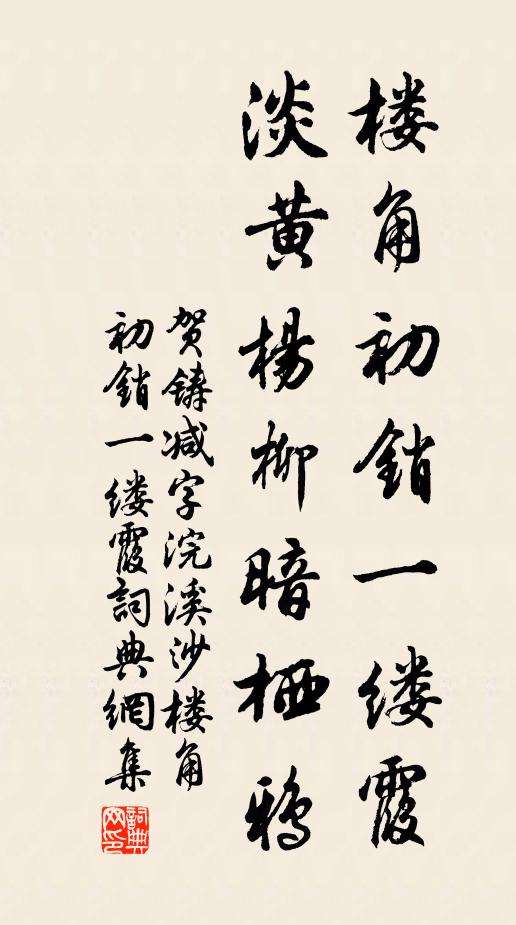 楼角初銷一缕霞
淡黄楊柳暗栖鴉
贺鑄减字浣溪沙楼角
初銷一缕霞詞典網集
詞典
网印